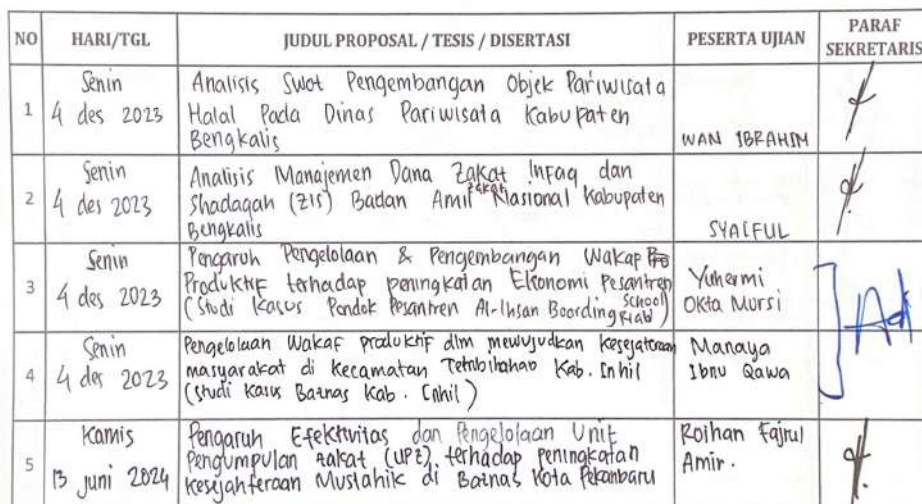 NO HARI/TGL JUDUL PROPOSAL / TESIS / DISERTASI PESERTA UJIAN PARAF SEKRETARIS
1
Senin
4 des 2023
Analisis Swot Pengembangan Objek Pariwisata
Halal Pada Dinas Pariwisata Kabupaten
Bengkalis
WAN IBRAHIM
2
Senin
4 des 2023
Analisis Manajemen Dana Zakat Infaq dan
Shadaqah (ZIS) Badan Amil zakat Nasional Kabupaten
Bengkalis
SYAIFUL
3
Senin
4 des 2023
Pengaruh Pengelolaan & Pengembangan Wakap
Produktif terhadap peningkatan Ekonomi Pesantren
(Studi Kasus Pondok Pesantren Al-Ihsan Boarding School Riau)
Yuhermi
Okta Mursi
4
Senin
4 des 2023
Pengelolaan Wakaf produktif dlm mewujudkan
masyarakat di Kecamatan Kab. Inhil
(Studi Kasus Baznas Kab. Inhil)
Manaya
Ibnu Qawa
5
Kamis
13 juni 2024
Pengaruh Efektivitas dan Pengelolaan Unit
Pengumpulan zakat (UPZ) terhadap peningkatan
Kesejahteraan Mustahik di Baznas Kota Pekanbaru
Roihan Fajrul
Amir.